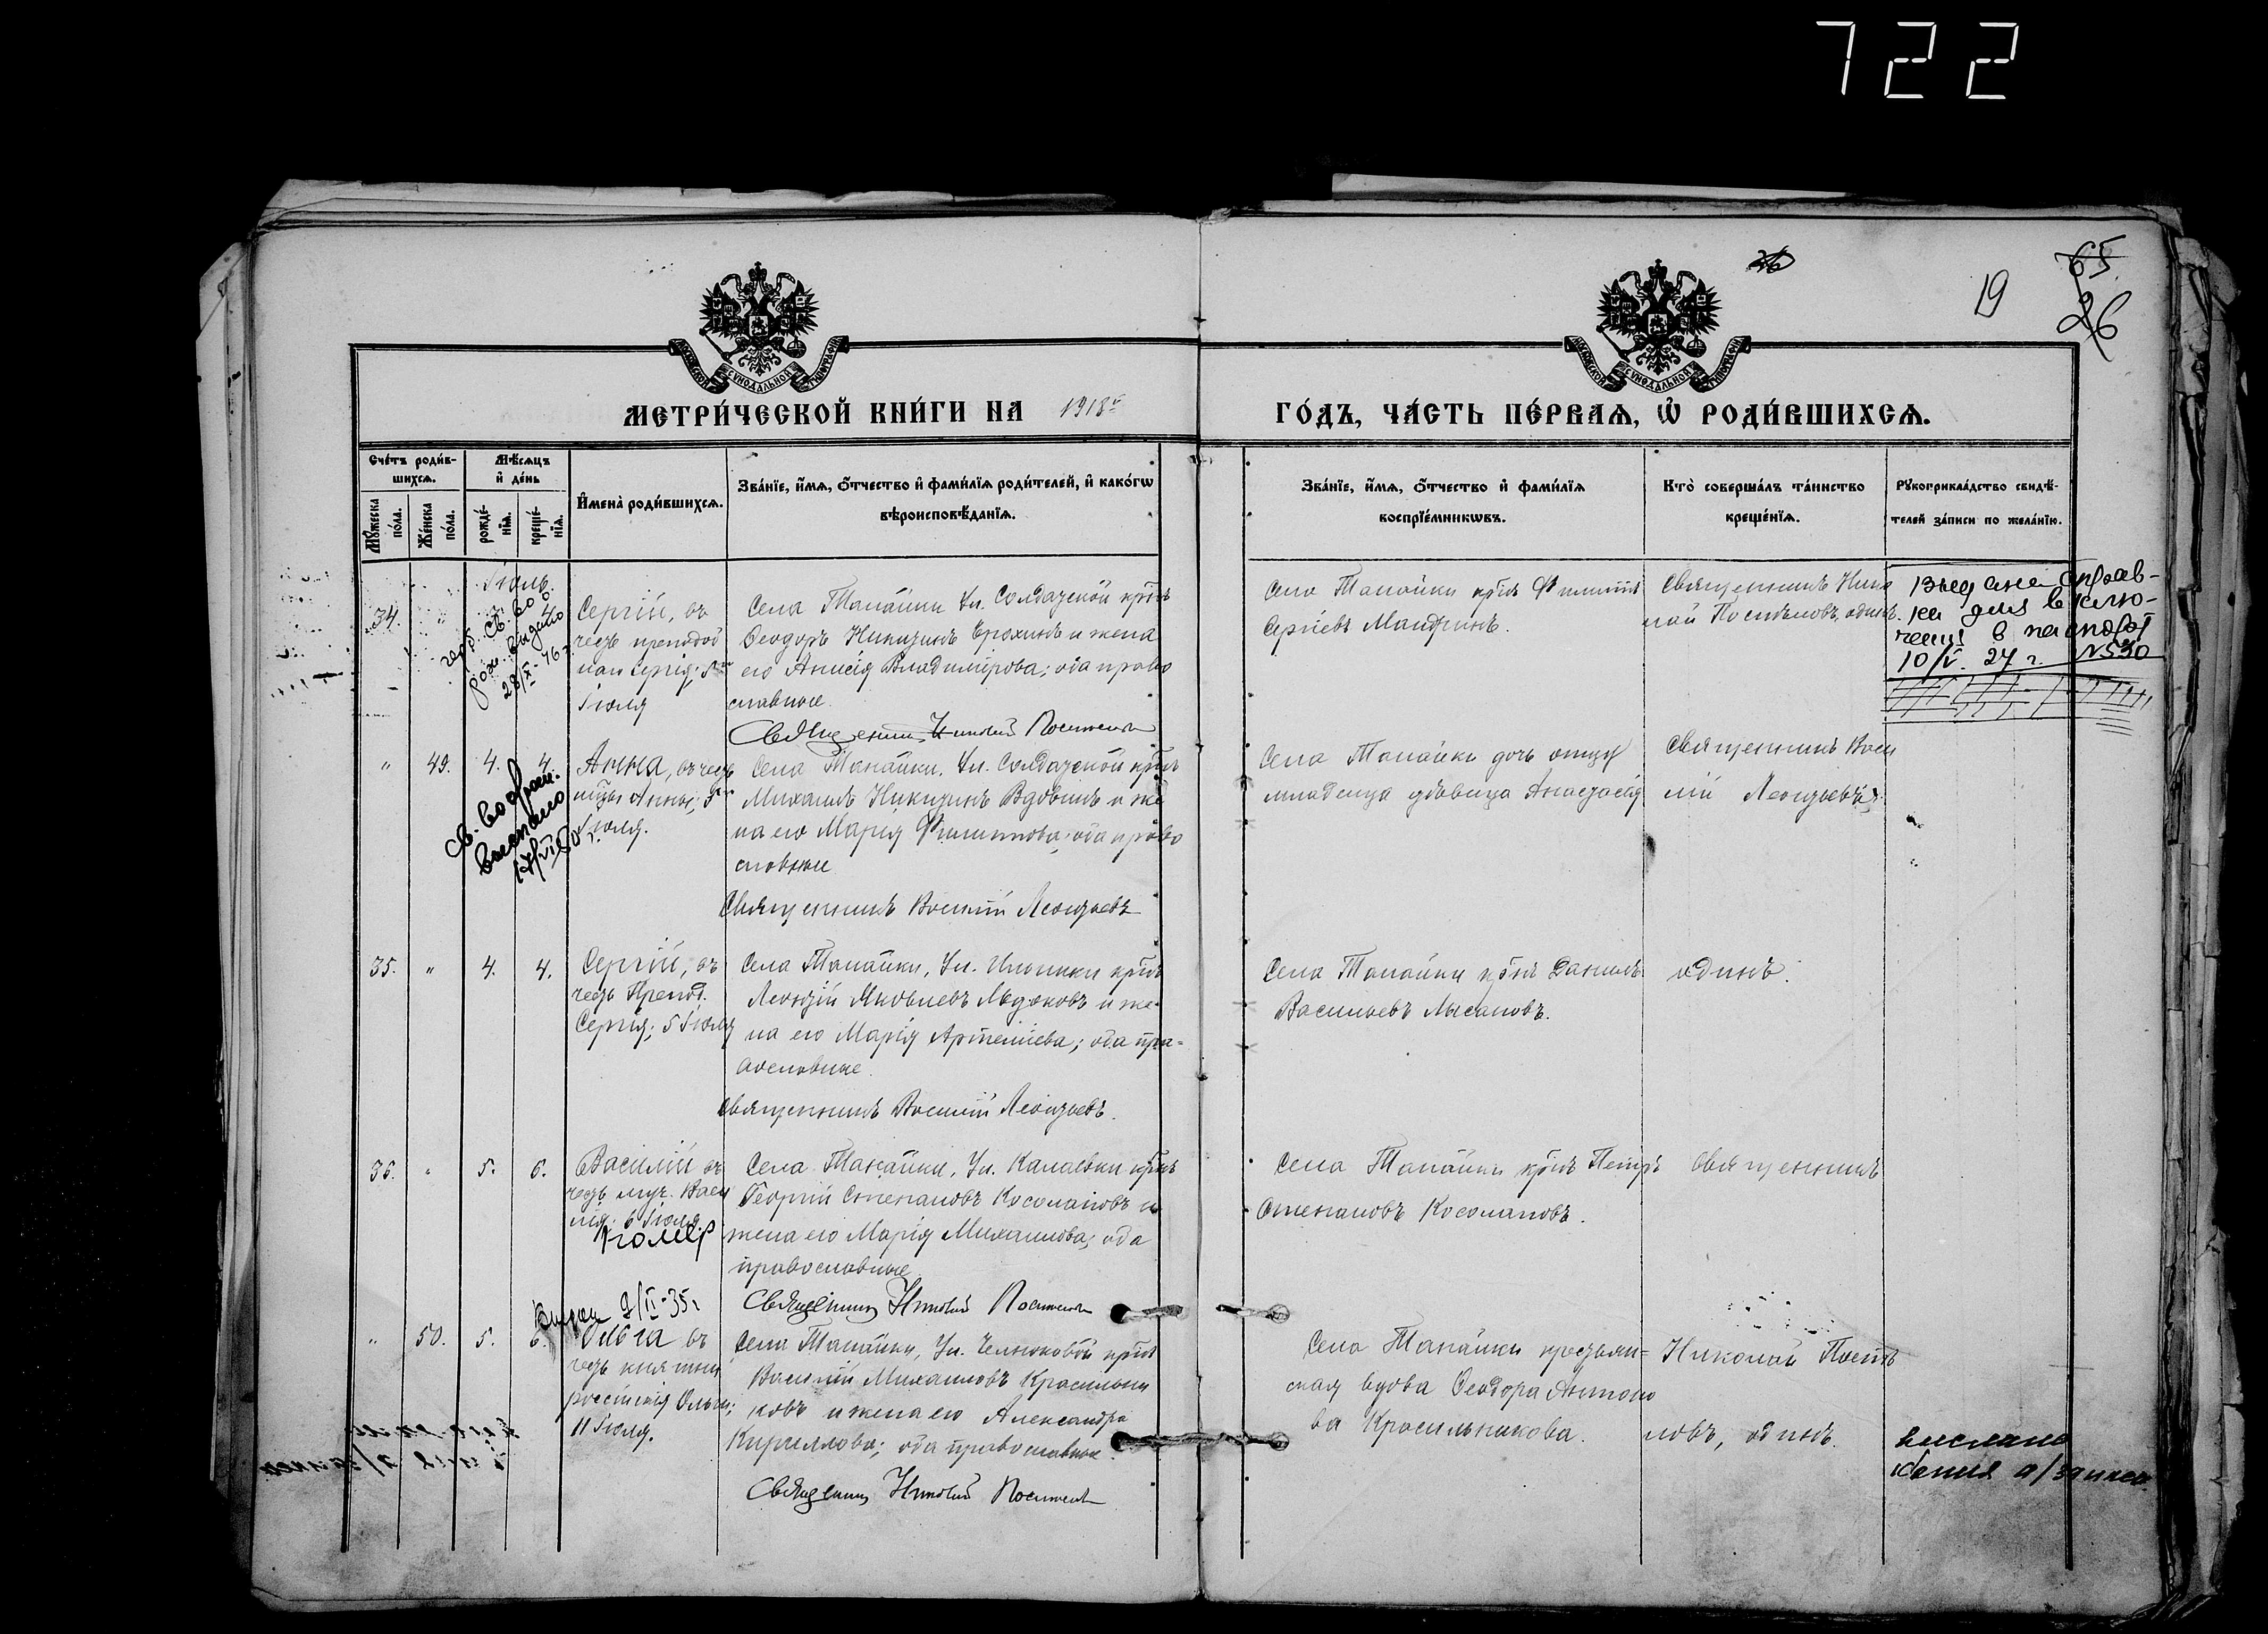 722
26
19
65
26
МОСКОВСКОЙ СѴНОДАЛЬНОЙ ТИПОГРАФІИ
МОСКОВСКОЙ СѴНОДАЛЬНОЙ ТИПОГРАФІИ
МЕТРИ́ЧЕСКОЙ КНИ́ГИ НА 1918й
ГО́ДЪ, ЧА́СТЬ ПЕ́РВАѦ, Ѡ҆ РОДИ́ВШИХСѦ.
Сче́тъ роди́в-
шихсѧ.
Мꙋ́жеска по́ла.
Же́нска по́ла.
Мѣ́сѧцъ
и҆ де́нь
рожде́-нїѧ.
креще́-нїѧ.
И҆мена̀ роди́вшихсѧ.
Зва́нїе, и҆́мѧ, ѻ҆́тчество и҆ фами́лїѧ роди́телей, и҆ како́гѡ
вѣроисповѣ́данїѧ.
Зва́нїе, и҆́мѧ, ѻ҆́тчество и҆ фами́лїѧ
воспрїе́мникѡвъ.
Кто̀ соверша́лъ та́инство
креще́нїѧ.
Рꙋкоприкла́дство свидѣ́-
телей за́писи по жела́нїю.
Іюль.
34. "
св. во о
рож. выдано
28/X-46 г
Сергій, въ
честь преподоб
наго Сергія; 5го
Іюля
Села Танайки Ул. Солдатской крнъ
Ѳеодоръ Никитинъ Ерохинъ и жена
его Анисія Владимірова; оба право
славные.
Священник Николай Поспелов
Села Танайки крнъ Филиппъ
Сергіевъ Мандринъ.
Священникъ Нико
лай Поспѣловъ, одинъ.
Выдана справ-
ка для вклю-
чения в паспорт
10/V. 27 г. №530
" 49. 4. 4.
св. во о рож.
выслано
17/VI 50 г.
Анна, въ честь
Анны; 5го
Іюля.
Села Танайки. Ул. Солдатской крнъ
Михаилъ Никитинъ Вдовинъ и же
на его Марія Филиппова; оба право
славные
Священникъ Василій Леонтьевъ
Села Танайки дочь отца
младенца дѣвица Анастасія
Священникъ Васи
лій Леонтьевъ
35. " 4. 4.
Сергій, въ
честь Препод.
Сергія; 5 Іюля
Села Танайки, Ул. Ильинки крнъ
Леонтій Яковлевъ и же-
на его Марія Артеміева; оба пра-
вославные.
Священникъ Василій Леонтьевъ.
Села Танайки крнъ Даніилъ
Васильевъ Лысановъ.
одинъ.
36. " 5. 6.
Василій въ
честь муч. Васи
лія; 6 Іюля.
Умер
Села Танайки, Ул. Калаевки крнъ
Георгій Степановъ Косолаповъ и
жена его Марія Михаилова; оба
православные
Священник Николай Поспелов
Села Танайки крнъ Петръ
Степановъ Косолаповъ.
Священникъ
9/II-35 г
" 50. 5. 6.
Ольга въ
честь княгини
россійскія Ольги;
11 Іюля.
Села Танайки, Ул. Челноковой крнъ
Василій Михаиловъ Красильни
ковъ и жена его Александра
Кириллова; оба православные.
Священник Николай Поспелов
Села Танайки крестьян=
ская вдова Ѳеодора Антоно
ва Красильникова.
Николай Поспѣ
ловъ, одинъ.
выслана
копия а/записи